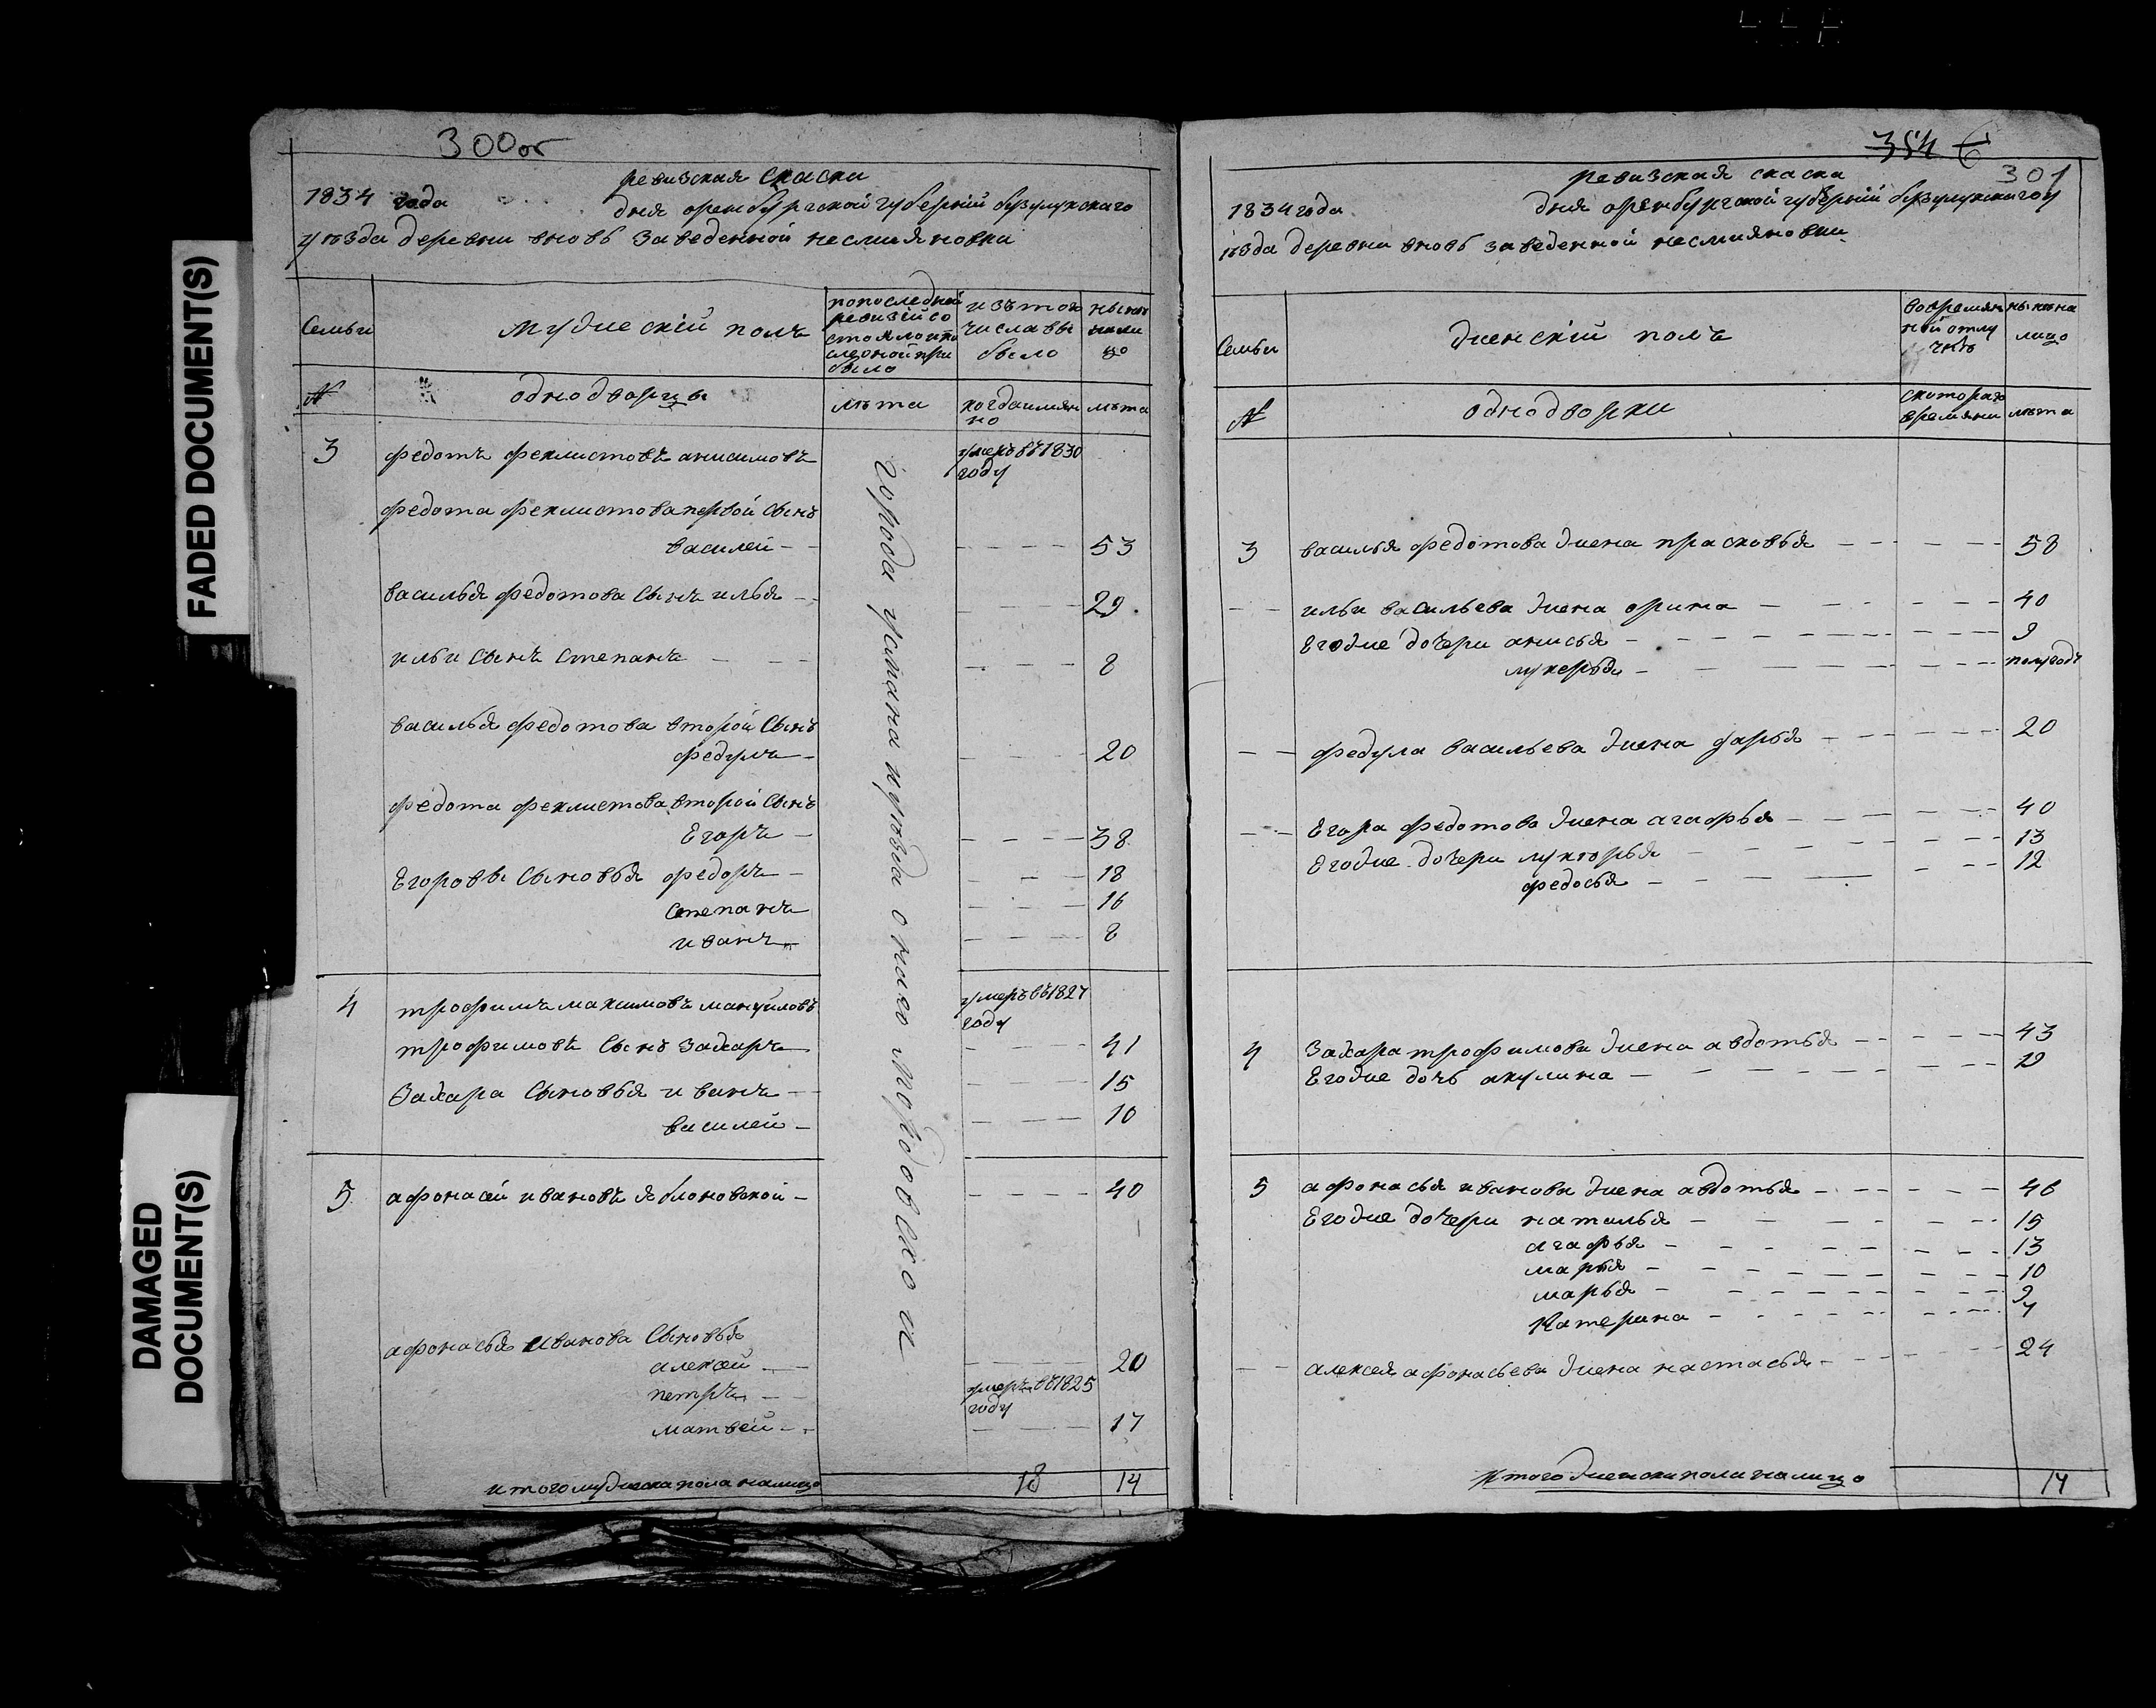 FADED DOCUMENT(S)
DAMAGED
DOCUMENT(S)
300об
ревизская скаска
1834 года дня оренбургской губернїй бузулукскаго
уѣзда деревни вновь заведенной несмияновки
Семьи
мужескїй полъ
попоследней
ревизїй со
стояло и по
слеоной при
было
изъ того
числа вы
было
ныне
нали
цо
№
однодворцы
лѣта
когда имян
но
лѣта
3
федотъ феклистовъ анисимовъ
умеръ въ 1830
году
федота феклистова первой сынъ
василей
53
василья федотова сынъ илья
29
ильи сынъ степанъ
8
василья федотова второй сынъ
федулъ
20
федота феклистова второй сынъ
Егоръ
38
Егоровы сыновья федоръ
18
степанъ
16
иванъ
8
4
трофимъ махимовъ мануйловъ
умеръ въ 1827
году
трофимовъ сынъ захаръ
41
Захара сыновья иванъ
15
василей
10
5
афонасей ивановъ яблоновской
40
афонасья иванова сыновья
алексей
20
петръ
умеръ въ 1825
году
матвей
17
города и уѣзда онаго
итого мужеска пола налицо
18
14
354
6
301
ревизская скаска
1834 года дня оренбургской губернїй бузулукскаго у
ѣзда деревни вновь заведенной несмияновки
Семьи
женскїй полъ
во времян
ной отлу
чкѣ
ныне на
лицо
№
однодворки
с котораго
времяни
лѣта
3
василья федотова жена прасковья
58
ильи васильева жена орина
40
Егожие дочери анисья
9
лукерья
полугодъ
федула васильева жена дарья
20
Егора федотова жена агафья
40
Егожие дочери лукѣрья
13
федосья
12
4
Захара трофимова жена авдотья
43
Егожие дочь акулина
12
5
афонасья иванова жена авдотья
46
Егожие дочери наталья
15
агафья
13
марья
10
марья
9
Катерина
7
алексея афонасьева жена настасья
24
итого женска пола налицо
14